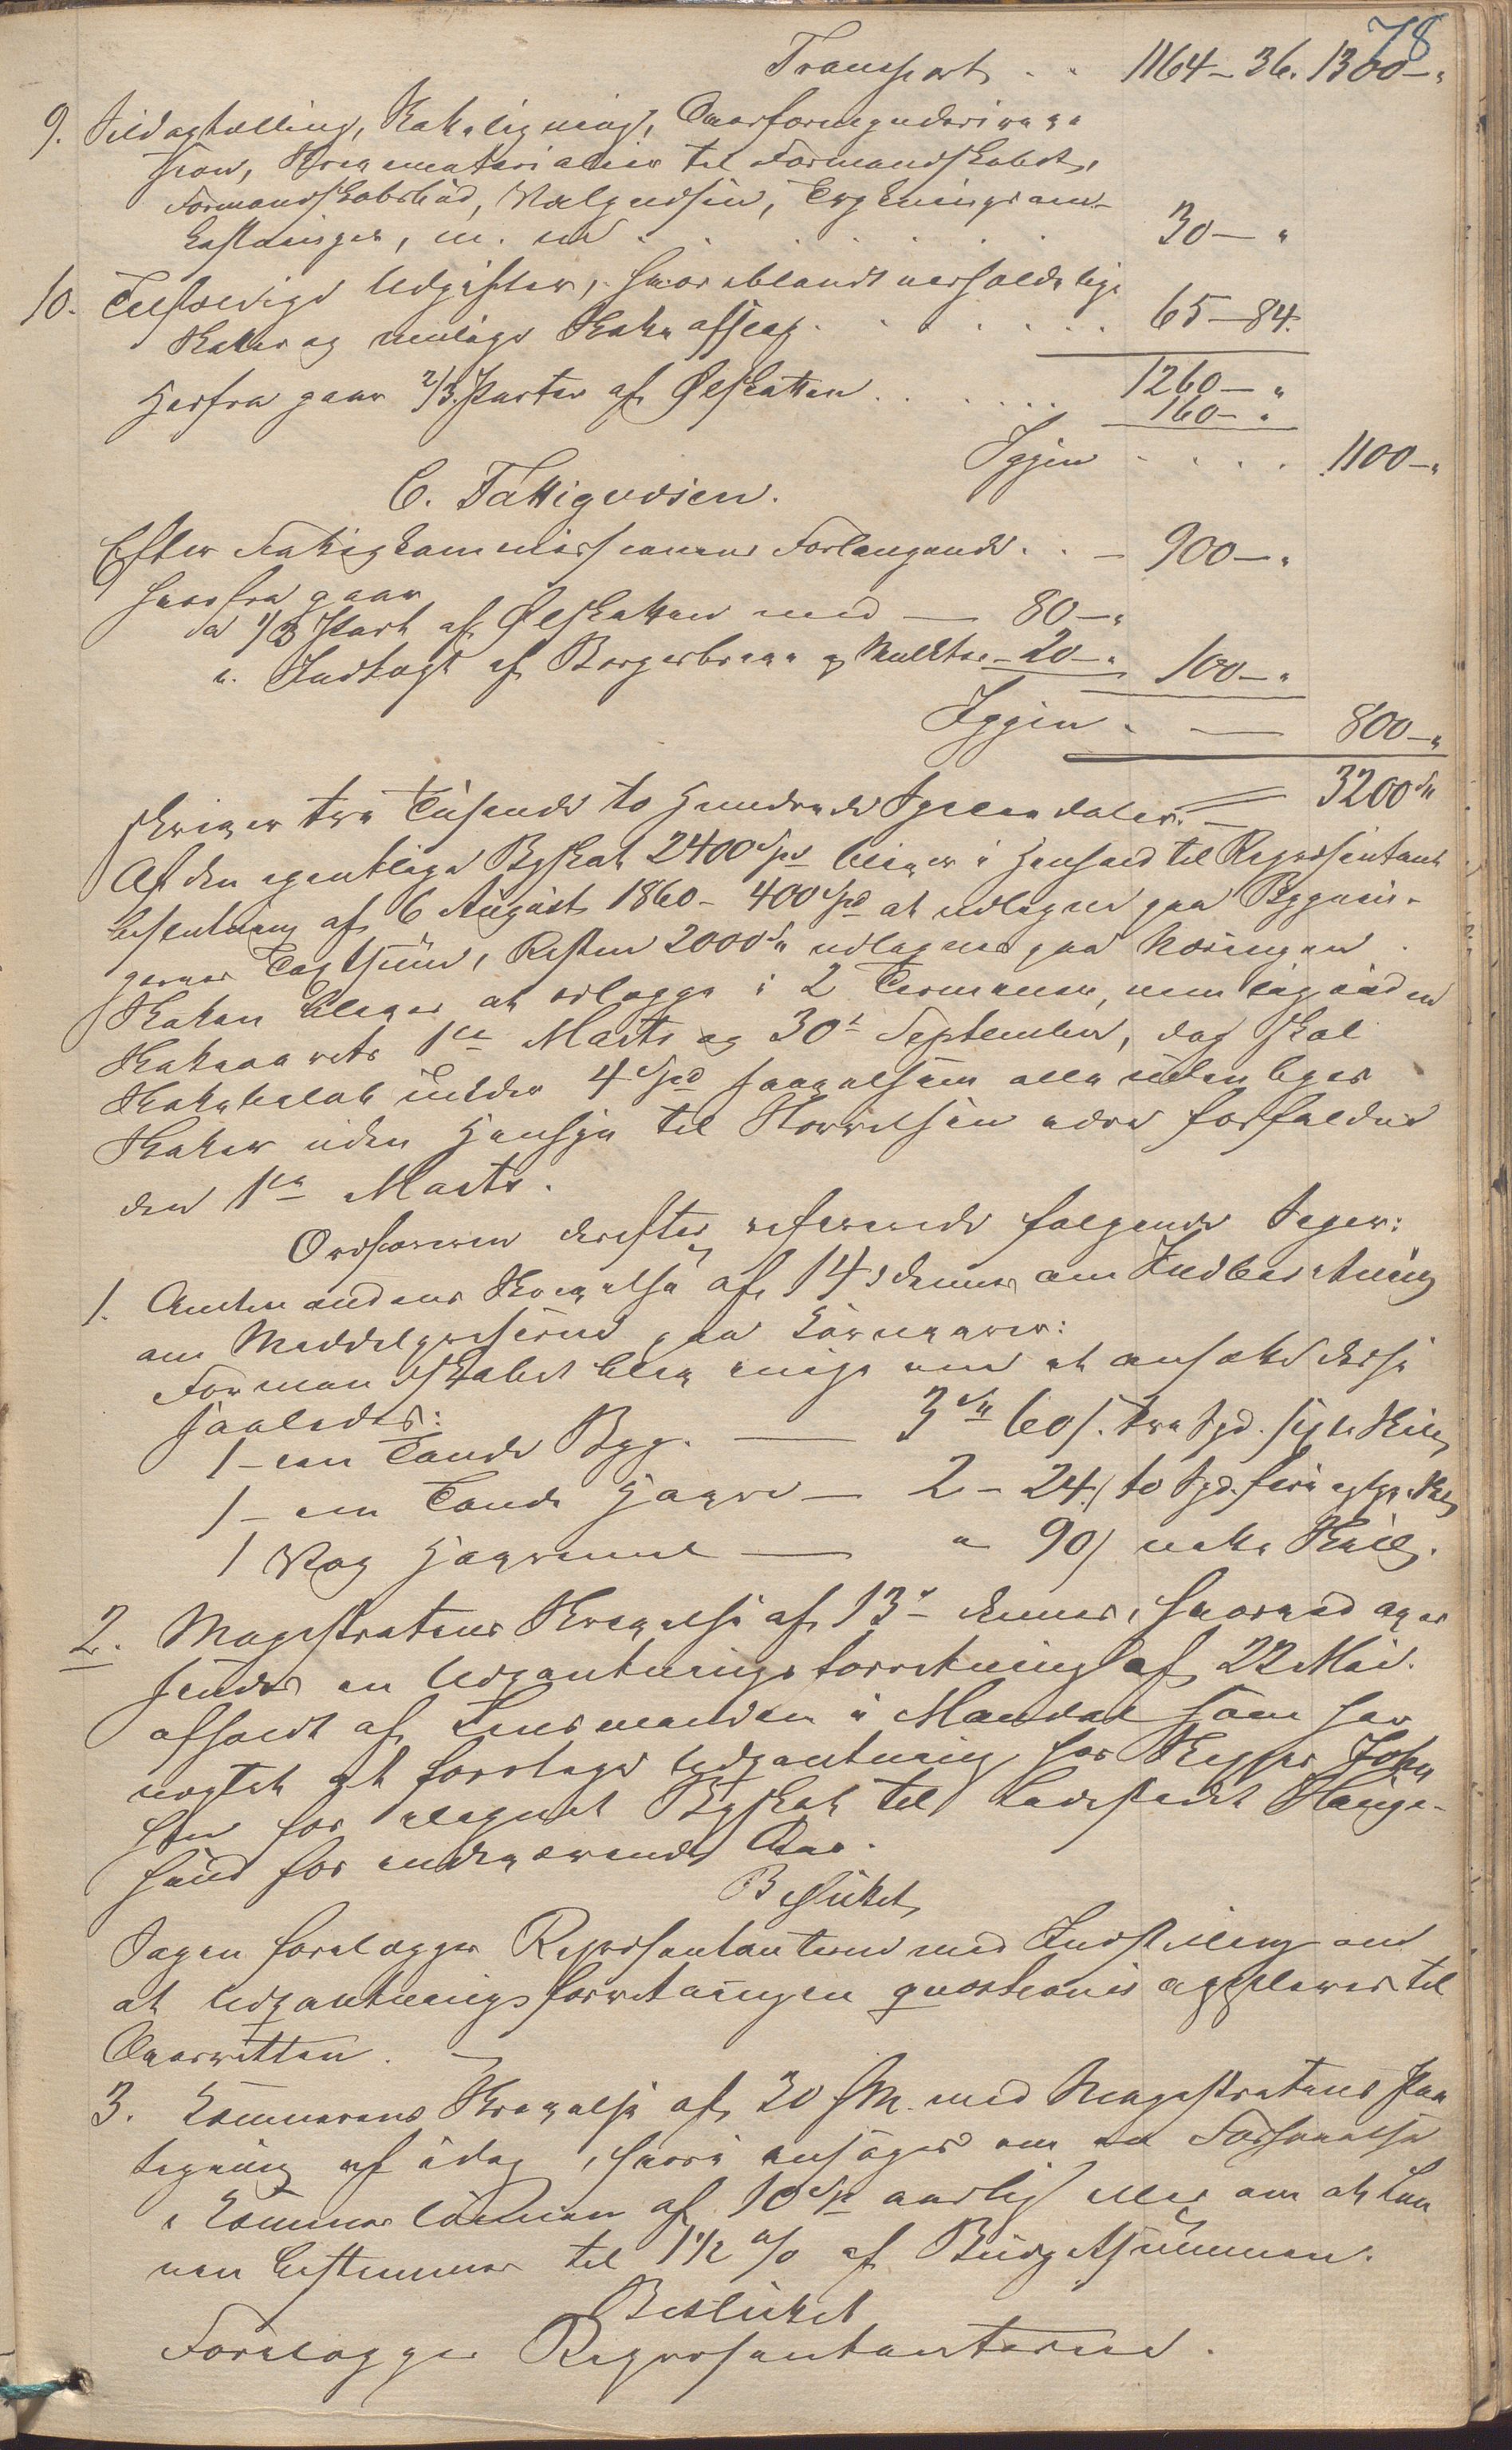 78
Transport . . 1164 - 36. 1300 - "
9. Sildoptælling, Skatteligning, Overformynderiværge
, Skrivematerialier til Formandskabet,
Formandskabsbud, Valgvæsen, Tegnings
kostninger, m. m. . . . . . 30 - "
10. Tilfældige Udgifter, hvoriblandt uerholdelige
Skatter og mulige Skatteafslag . . . . . 65 - 84.
1260 - "
Herfra gaar 2/3 Parter af Ølskatten . . . . . 160 - "
Igjen . . . . 1100 - "
C. Fattigvæsen.
Efter Fattigkommissionens Forlangende . . - 900 - "
hvorfra gaar
a 1/3 Part af Ølskatten med — 80 - "
" Indtægt af Borgerbreve og Mulkter - 20 - " 100 - "
Igjen . — 800 - "
3200 Spd
skriver tre Tusende to Hundrede Speciedaler.
Af den egentlige Byskat 2400 Spd bliver i Henhold til Repræsentant
beslutning af 6 August 1860 - 400 Spd at udlignes paa Bygnin-
gernes Taxtsum, Resten 2000 Spd udlignes paa Næringen.
Skatten bliver at erlægge i 2 Terminer, nemlig inden
Skatteaarets 1ste Marts og 30te September, dog skal
Skattebeløb under 4 Spd saavelsom alle udenbyes
Skatter uden Hensyn til Størrelsen være forfaldne
den 1ste Marts.
Ordføreren derefter refererede følgende Sager:
1. Amtmandens Skrivelse af 14de dennes om Indberetning
om Middelpriserne paa Kornvarer:
Formandskabet blev enige om at ansætte disse
saaledes:
1 - een Tønde Byg. — 3 Spd 60 s. tre Spd. sexti Skill
1 - een Tønde Havre — 2 - 24 / to Spd. fire og tyve Skill
1 Vog Havremel — " 90 / niti Skill.
2. Magistratens Skrivelse af 13de dennes, hvorved over
sendes en Udpantningsforretning af 22 Mai
afholdt af Lensmanden i Mandal som har
negtet at foretage Udpantning hos Skipper John
sen for ilignet Byskat til Ladestedet Hauge-
sund for indeværende Aar.
Besluttet
Sagen forelægges Repræsentanterne med Indstilling om
at Udpantningsforretningen qvæstionis appelleres til
Overretten. —
3. Kæmnerens Skrivelse af 20 f.M. med Magistratens Paa
tegning af idag, hvori ansøges om en Forhøielse
i Kæmnerlønnen af 10 Spd aarlig eller om at Løn
nen bestemmes til 1 1/2 % af Budgetsummen.
Besluttet
Forelægges Repræsentanterne.